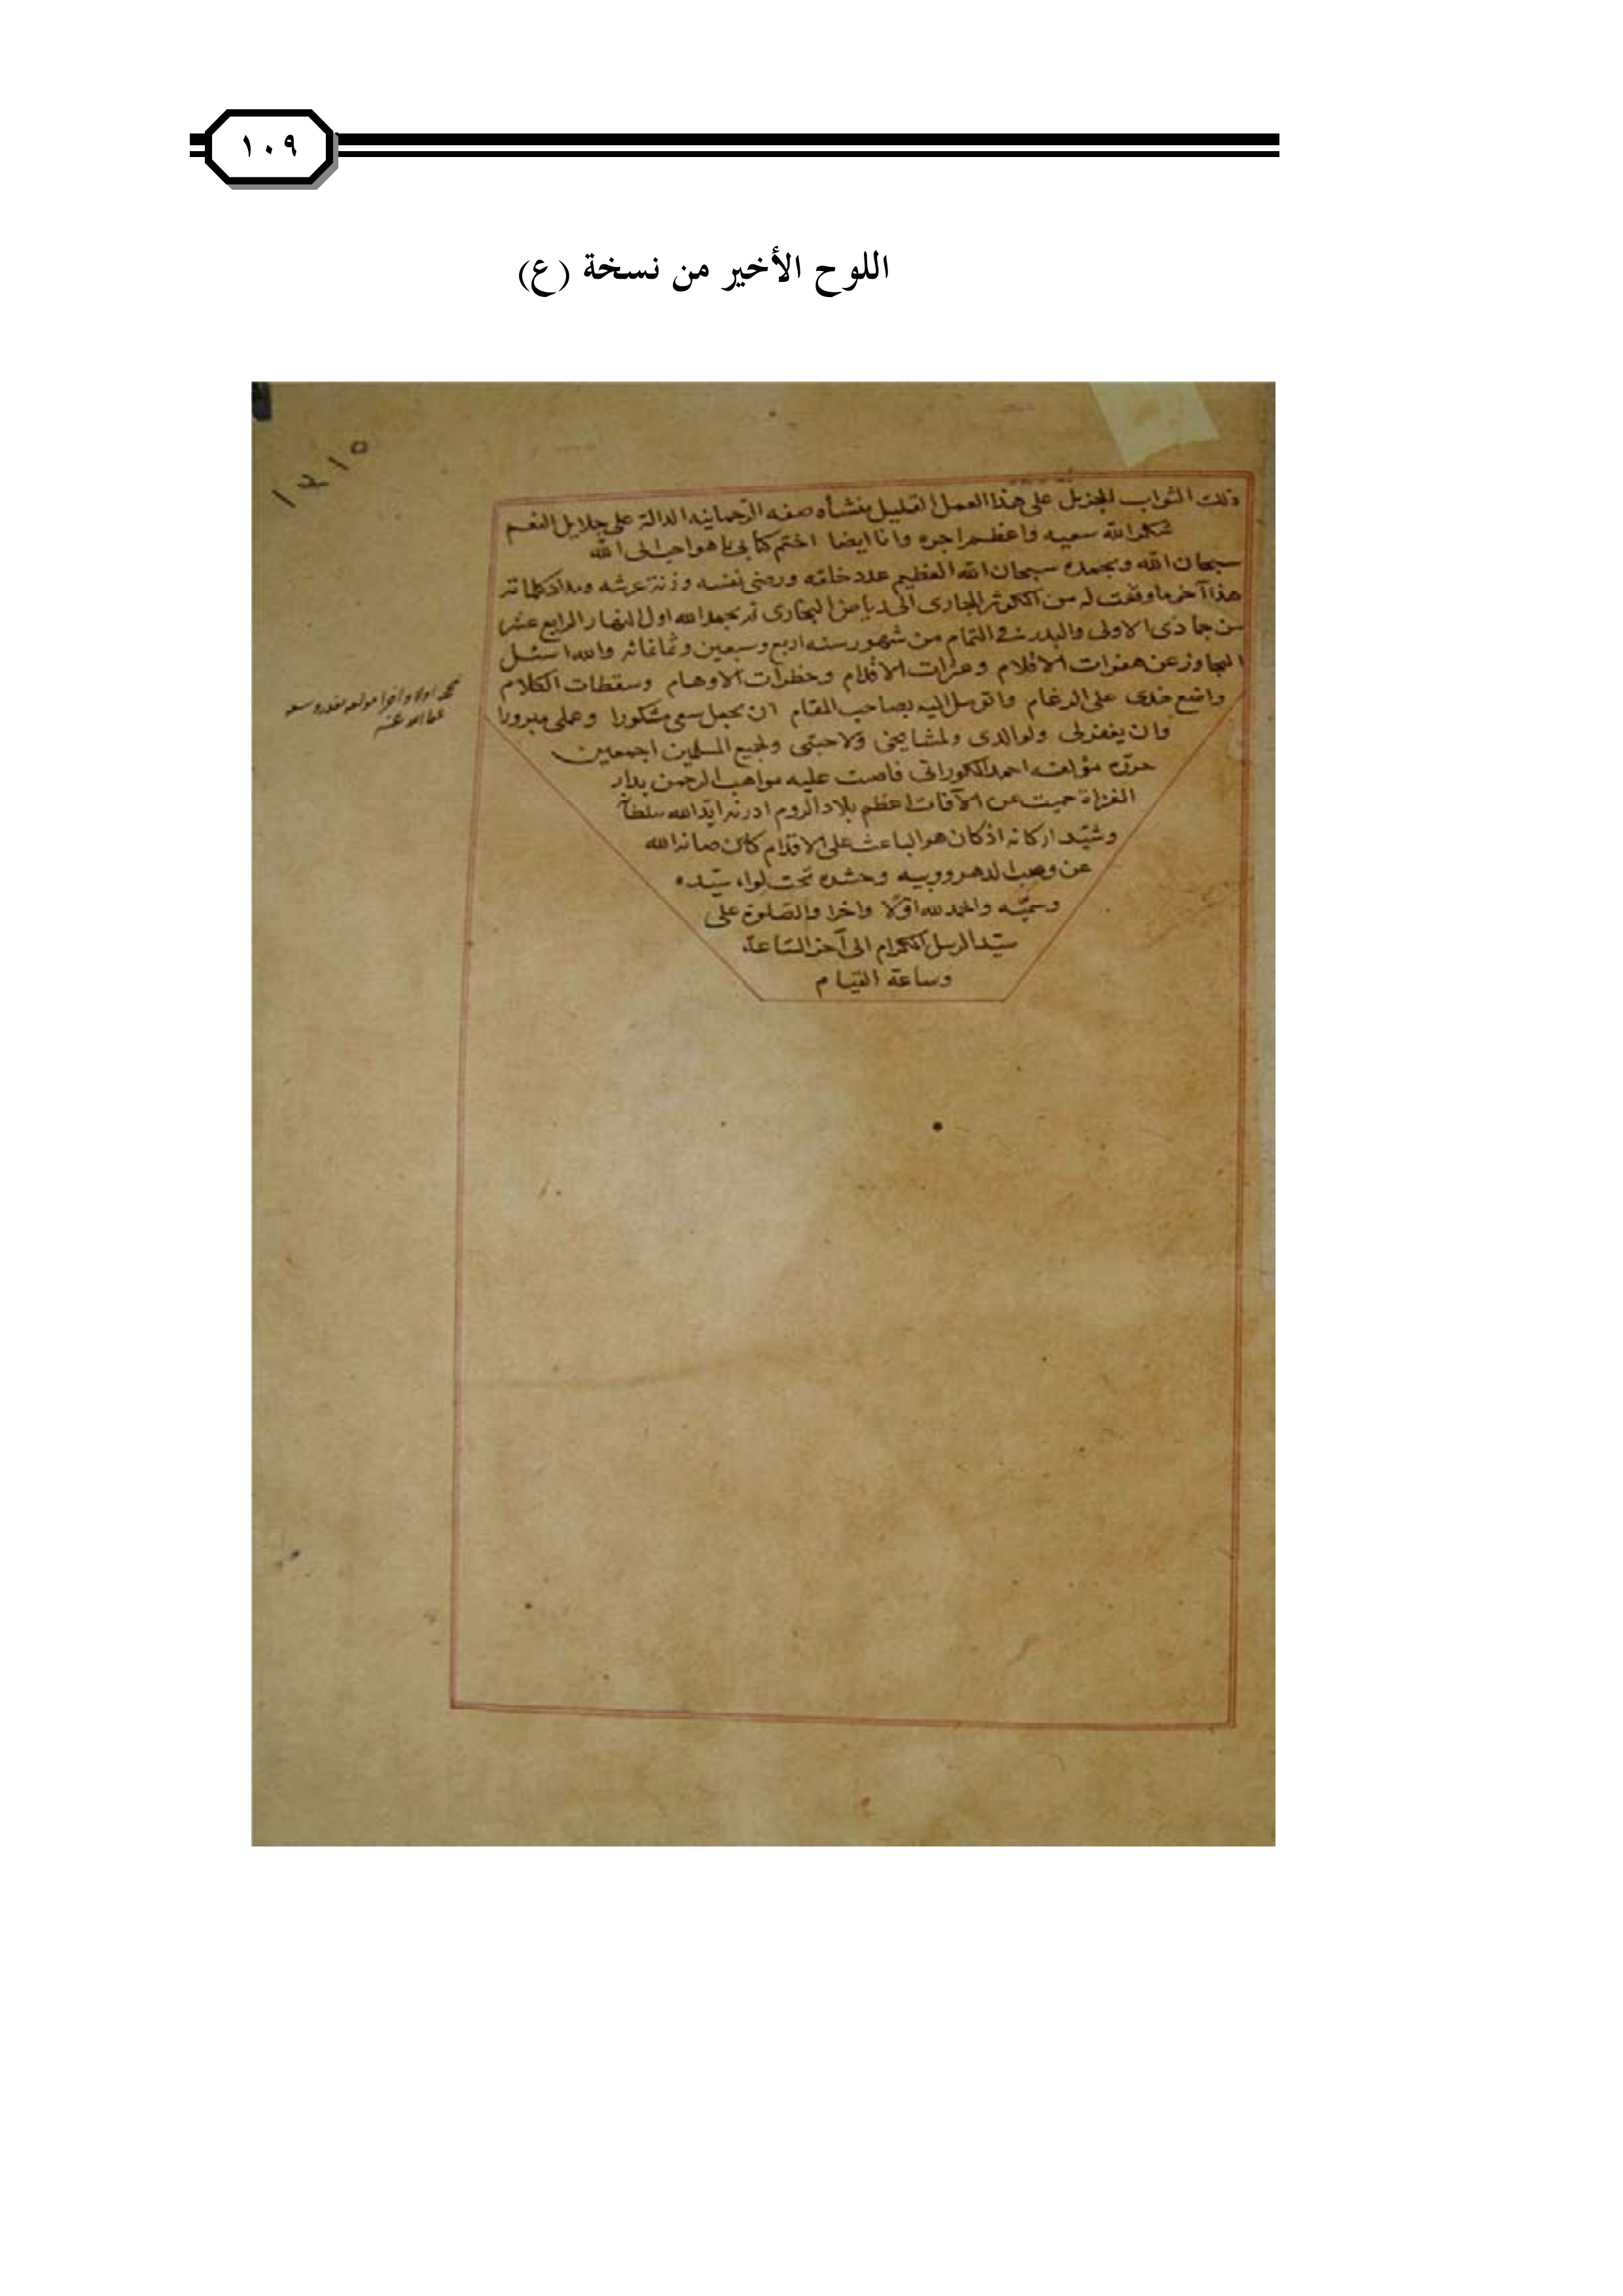 ١٠٩
اللوح الأخير من نسخة (ع)
ذلك الثواب الجزيل على هذا العمل القليل منشأه صفه الرحمانيه الدالة على جلايل النعم
شكر الله سعيه واعظم اجره وانا ايضا اختم كتابى بما هو احب الى الله
سبحان الله وبحمده سبحان الله العظيم عدد خلقه ورضى نفسه وزنة عرشه ومداد كلماته
هذا آخر ما وفقت له من الكوثر الجارى الى رياض البخارى تم بحمد الله اول النهار الرابع عشر
من جمادى الاولى والبدر فى التمام من شهور سنه اربع وسبعين وثمانمائه والله اسئل
التجاوز عن هفوات الاقلام وعثرات الاقدام وخطرات الاوهام وسقطات الكلام
واضع خدى على الرغام واتوسل اليه بصاحب المقام ان يجعل سعى مشكورا وعملى مبرورا
وان يغفر لى ولوالدى ولمشايخى ولاحبتى ولجميع المسلمين اجمعين
حرره مؤلفه احمد الكورانى فاضت عليه مواهب الرحمن بدار
الغزاة حميت عن الآفات اعظم بلاد الروم ادرنه ايد الله سلطا
وشيد اركانه اذ كان هو الباعث على الاقدام كان صانه الله
عن الدهر وريبه وحشره تحت لواء سيده
وسميه والحمد لله اولا واخرا والصلوة على
سيد الرسل الكرام الى آخر الساعة
وساعة القيام